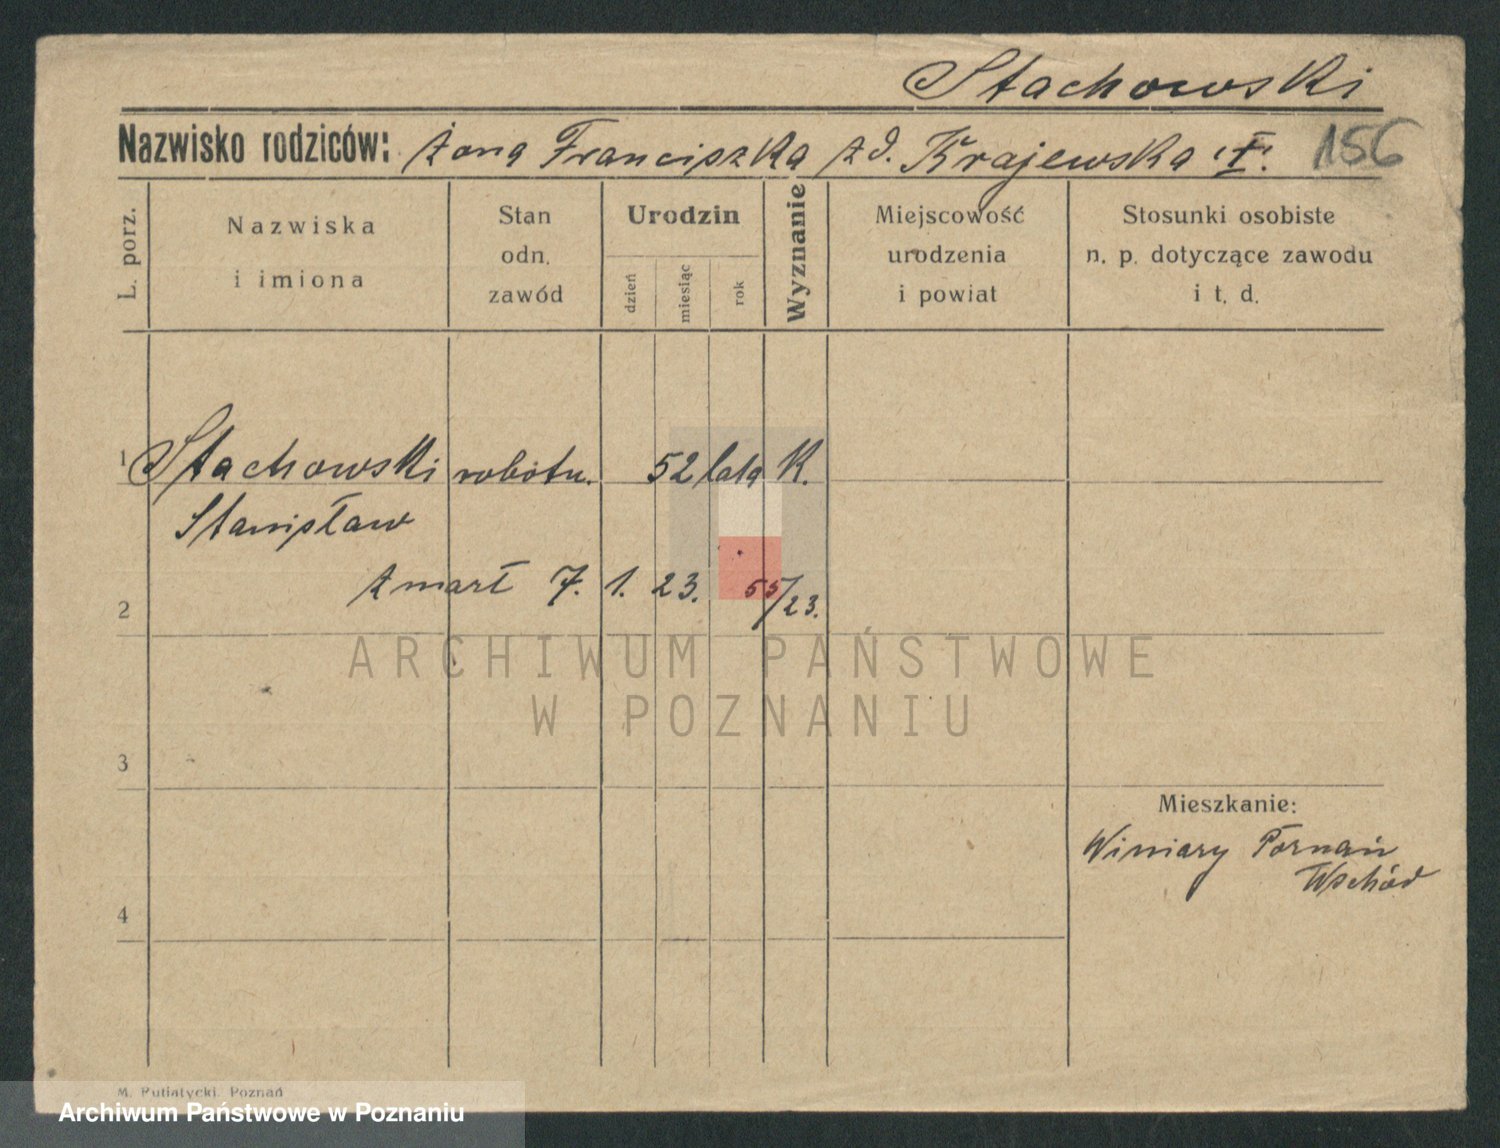 Stachowski
Nazwisko rodziców: żona Franciszka zd. Krajewska "I". 156
L. porz.
Nazwiska
i imiona
Stan
odn.
zawód
Urodzin
dzień
miesiąc
rok
Wyznanie
Miejscowość
urodzenia
i powiat
Stosunki osobiste
n. p. dotyczące zawodu
i t. d.
1 Stachowski robotn. 52 lata K.
Stanisław
zmarł 7. 1. 23. 55/23.
2
ARCHIWUM PAŃSTWOWE
W POZNANIU
3
Mieszkanie:
Winiary Poznań
Wschód
4
M. Putiatycki. Poznań
Archiwum Państwowe w Poznaniu